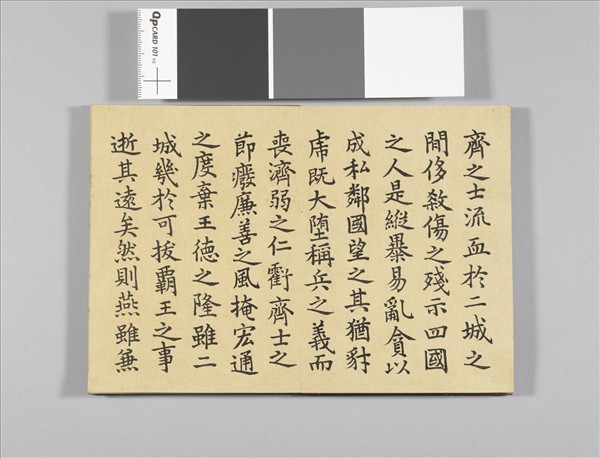 Qp CARD 101 v2
齊之士流血於二城之
間侈殺傷之殘示四國
之人是縱暴易亂貪以
成私鄰國望之其猶豺
虎既大墮稱兵之義而
喪濟弱之仁虧齊士之
節癈廉善之風掩宏通
之度棄王德之隆雖二
城幾於可拔霸王之事
逝其遠矣然則燕雖兼